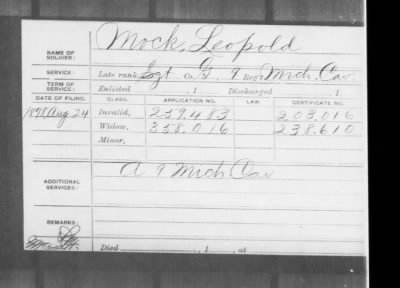 NAME OF SOLDIER: Mock, Leopold
SERVICE: Late rank, Sgt Co. G, 9 Reg't Mich. Cav.
TERM OF SERVICE: Enlisted , 1 Discharged , 1
DATE OF FILING. CLASS. APPLICATION NO. LAW. CERTIFICATE NO.
1878 Aug 24 Invalid, 259.483 203,016
Widow, 358,016 238,610
Minor,
ADDITIONAL SERVICES: A 9 Mich Cav
REMARKS:
Died , 1 , at